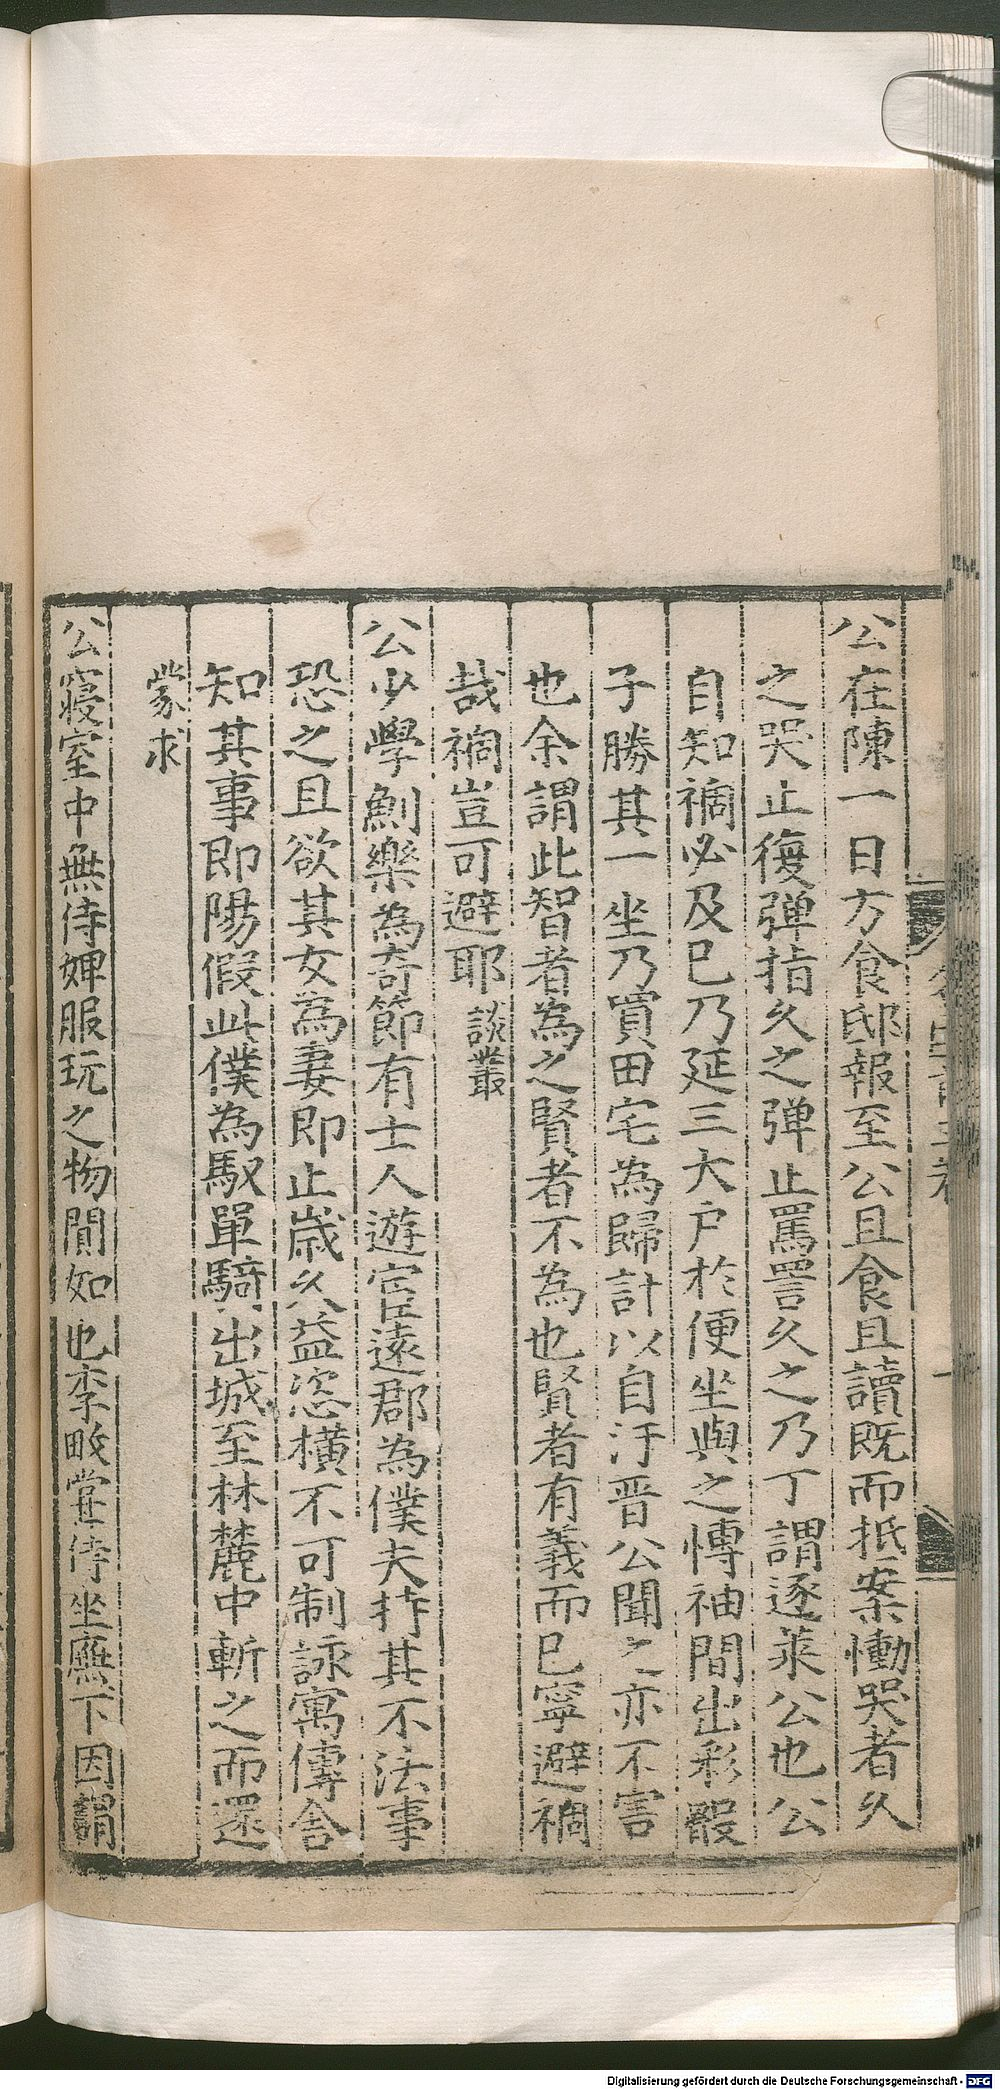 公在陳一日方食邸報至公且食且讀既而抵案慟哭者久
之哭止復弾指久之弾止罵詈久之乃丁謂逐萊公也公
自知禍必及已乃延三大户於便坐與之博袖間出彩骰
子勝其一坐乃買田宅為歸計以自汙晋公聞之亦不害
也余謂此智者為之賢者不為也賢者有義而已寧避禍
哉禍豈可避耶 談叢
公少學劍樂為奇節有士人遊宦遠郡為僕夫持其不法事
恐之且欲其女為妻即止歳久益恣横不可制詠寓傳舎
知其事即陽假此僕為馭單騎出城至林麓中斬之而還
蒙求
公寢室中無侍婢服玩之物閴如也李畋甞侍坐廡下因謂
Digitalisierung gefördert durch die Deutsche Forschungsgemeinschaft - DFG